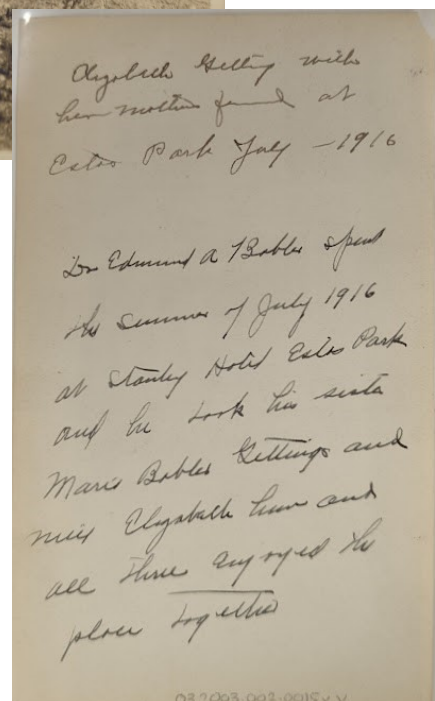 Elizabeth Getting with
her mothers friend at
Estes Park July - 1916
Dr Edmund A Babler spent
the summer of July 1916
at Stanley Hotel Estes Park
and he took his sister
Marie Babler Gettings and
niece Elizabeth here and
all three enjoyed the
place together